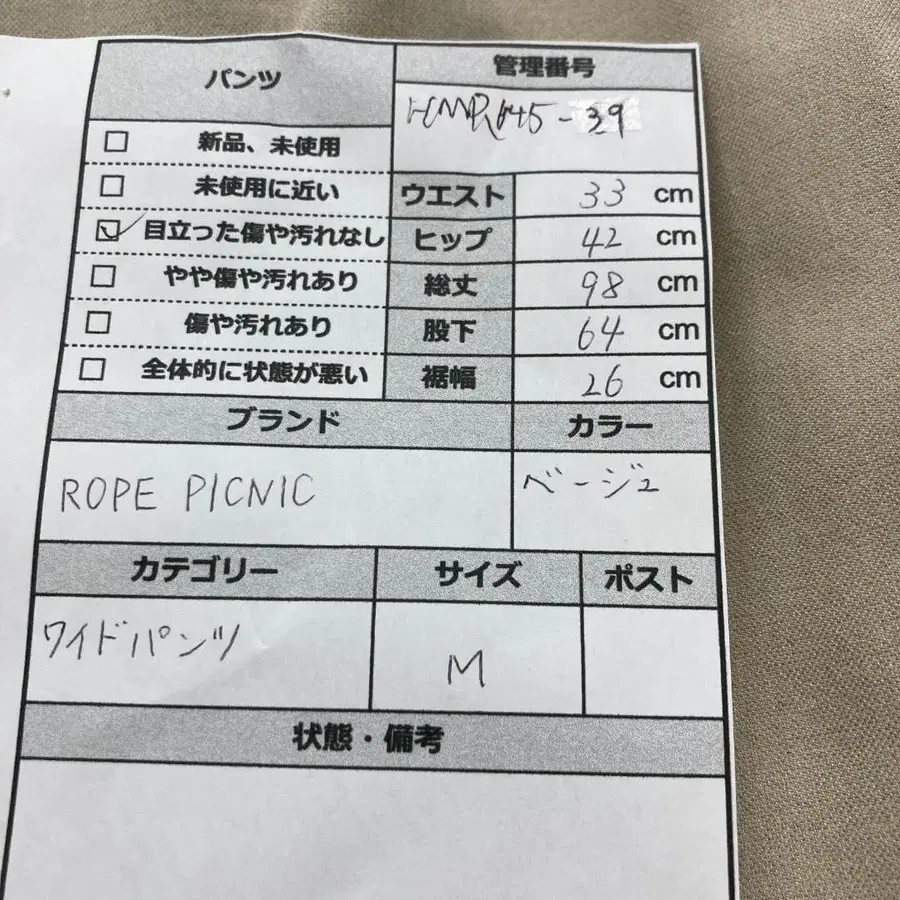 パンツ
管理番号
-39
☐ 新品、未使用
☐ 未使用に近い
☑ 目立った傷や汚れなし
☐ やや傷や汚れあり
☐ 傷や汚れあり
☐ 全体的に状態が悪い
ウエスト 33 cm
ヒップ 42 cm
総丈 98 cm
股下 64 cm
裾幅 26 cm
ブランド
カラー
ROPE PICNIC
ベージュ
カテゴリー
サイズ
ポスト
ワイドパンツ
M
状態・備考